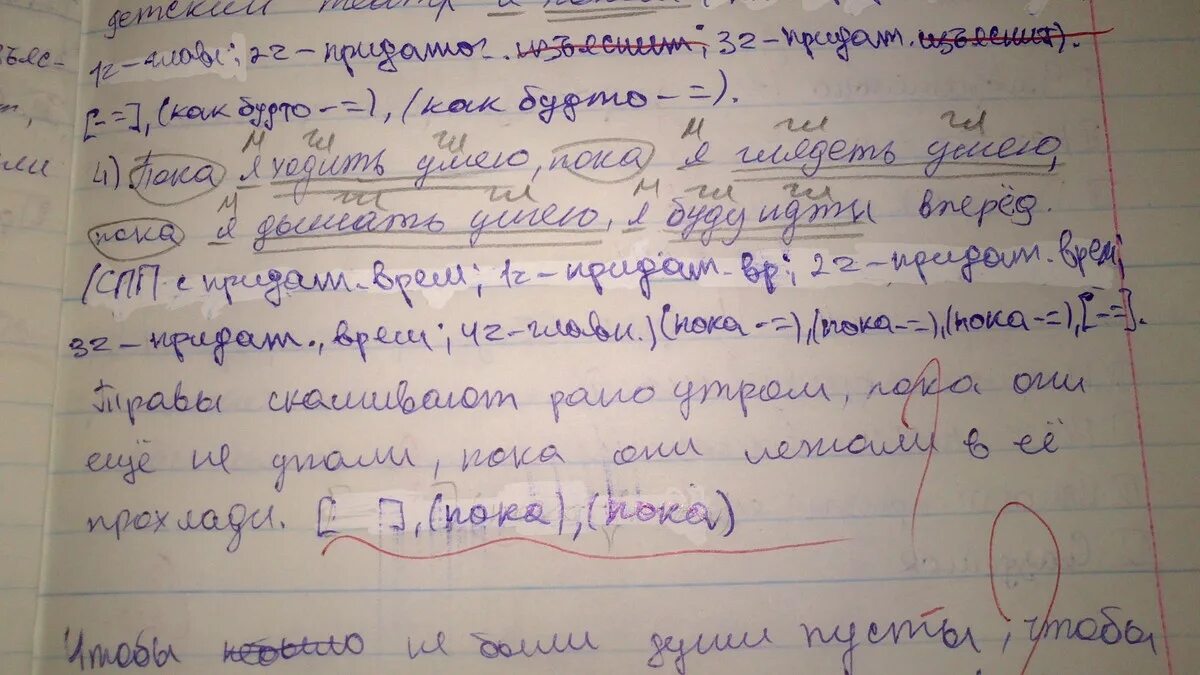 детский театр и
1ч – главн; 2ч – придаточ. изъяснит; 3ч – придат. изъяснит).
[– =], (как будто – =), (как будто – =).
м гл гл м гл гл
4) Пока я ходить умею, пока я глядеть умею,
м гл гл м гл гл
пока я дышать умею, я буду идти вперёд.
(СПП с придат. врем; 1ч – придат. вр; 2ч – придат. врем;
3ч – придат., врем; 4ч – главн.) (пока – =), (пока – =), (пока – =), [– =].
Травы скашивают рано утром, пока они
ещё не упали, пока они лежали в её
прохлади. [ ], (пока), (пока)
Чтобы не были души пусты, чтобы